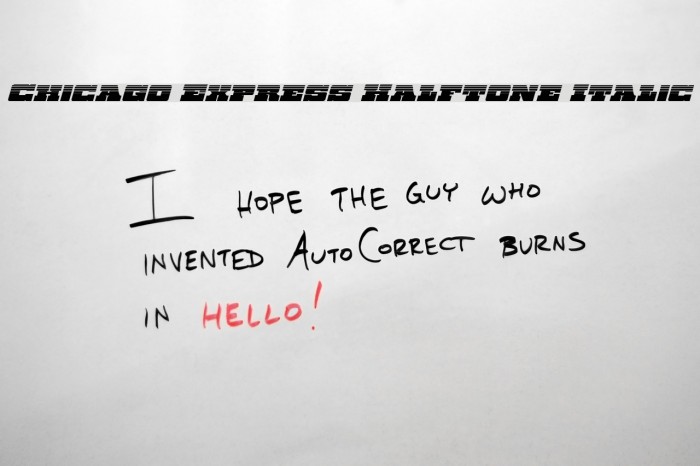 Chicago Express Halftone Italic
I HOPE THE GUY WHO
INVENTED AUTOCORRECT BURNS
IN HELLO!